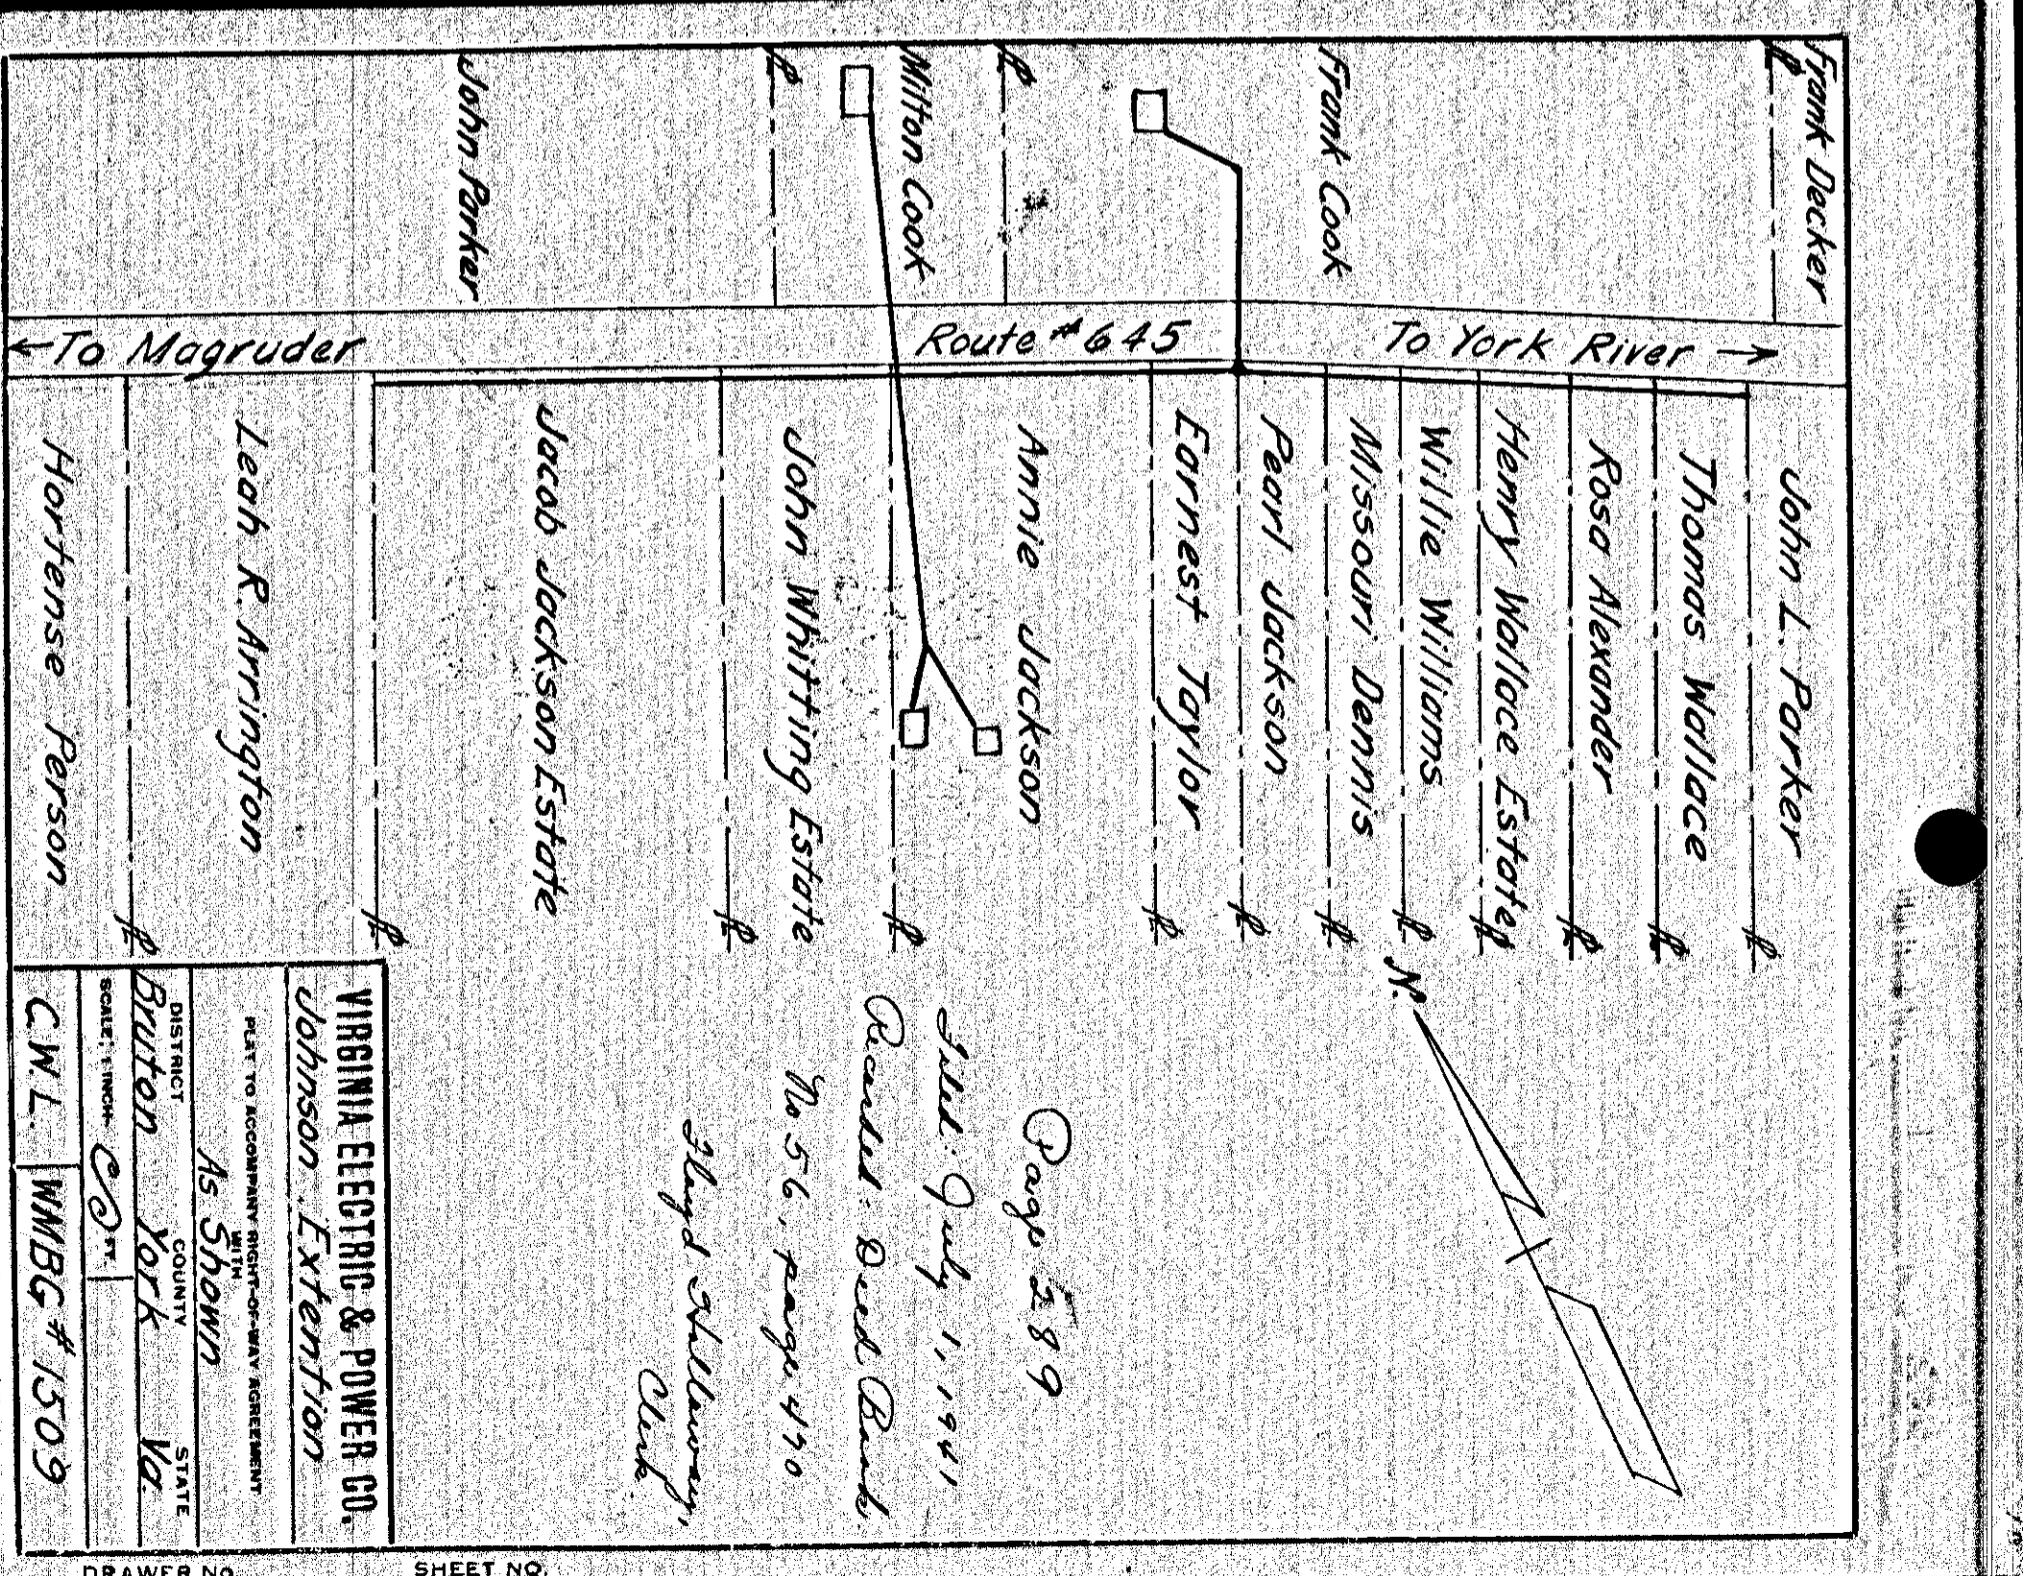 Frank Decker
Frank Cook
Milton Cook
John Parker
← To Magruder
Route #645
To York River →
John L. Parker
Thomas Wallace
Rosa Alexander
Henry Wallace Estate
Willie Williams
Missouri Dennis
Pearl Jackson
Earnest Taylor
Annie Jackson
John Whitting Estate
Jacob Jackson Estate
Leah R. Arrington
Hortense Person
N.
Page 289
Filed: July 1, 1941
Recorded: Deed Book
No 56, page 470
Floyd Holloway,
Clerk.
VIRGINIA ELECTRIC & POWER CO.
Johnson Extention
PLAT TO ACCOMPANY RIGHT-OF-WAY AGREEMENT
WITH
As Shown
DISTRICT COUNTY STATE
Bruton York Va.
SCALE, 1 INCH FT.
C.W.L. WMBG # 1509
DRAWER NO.
SHEET NO.